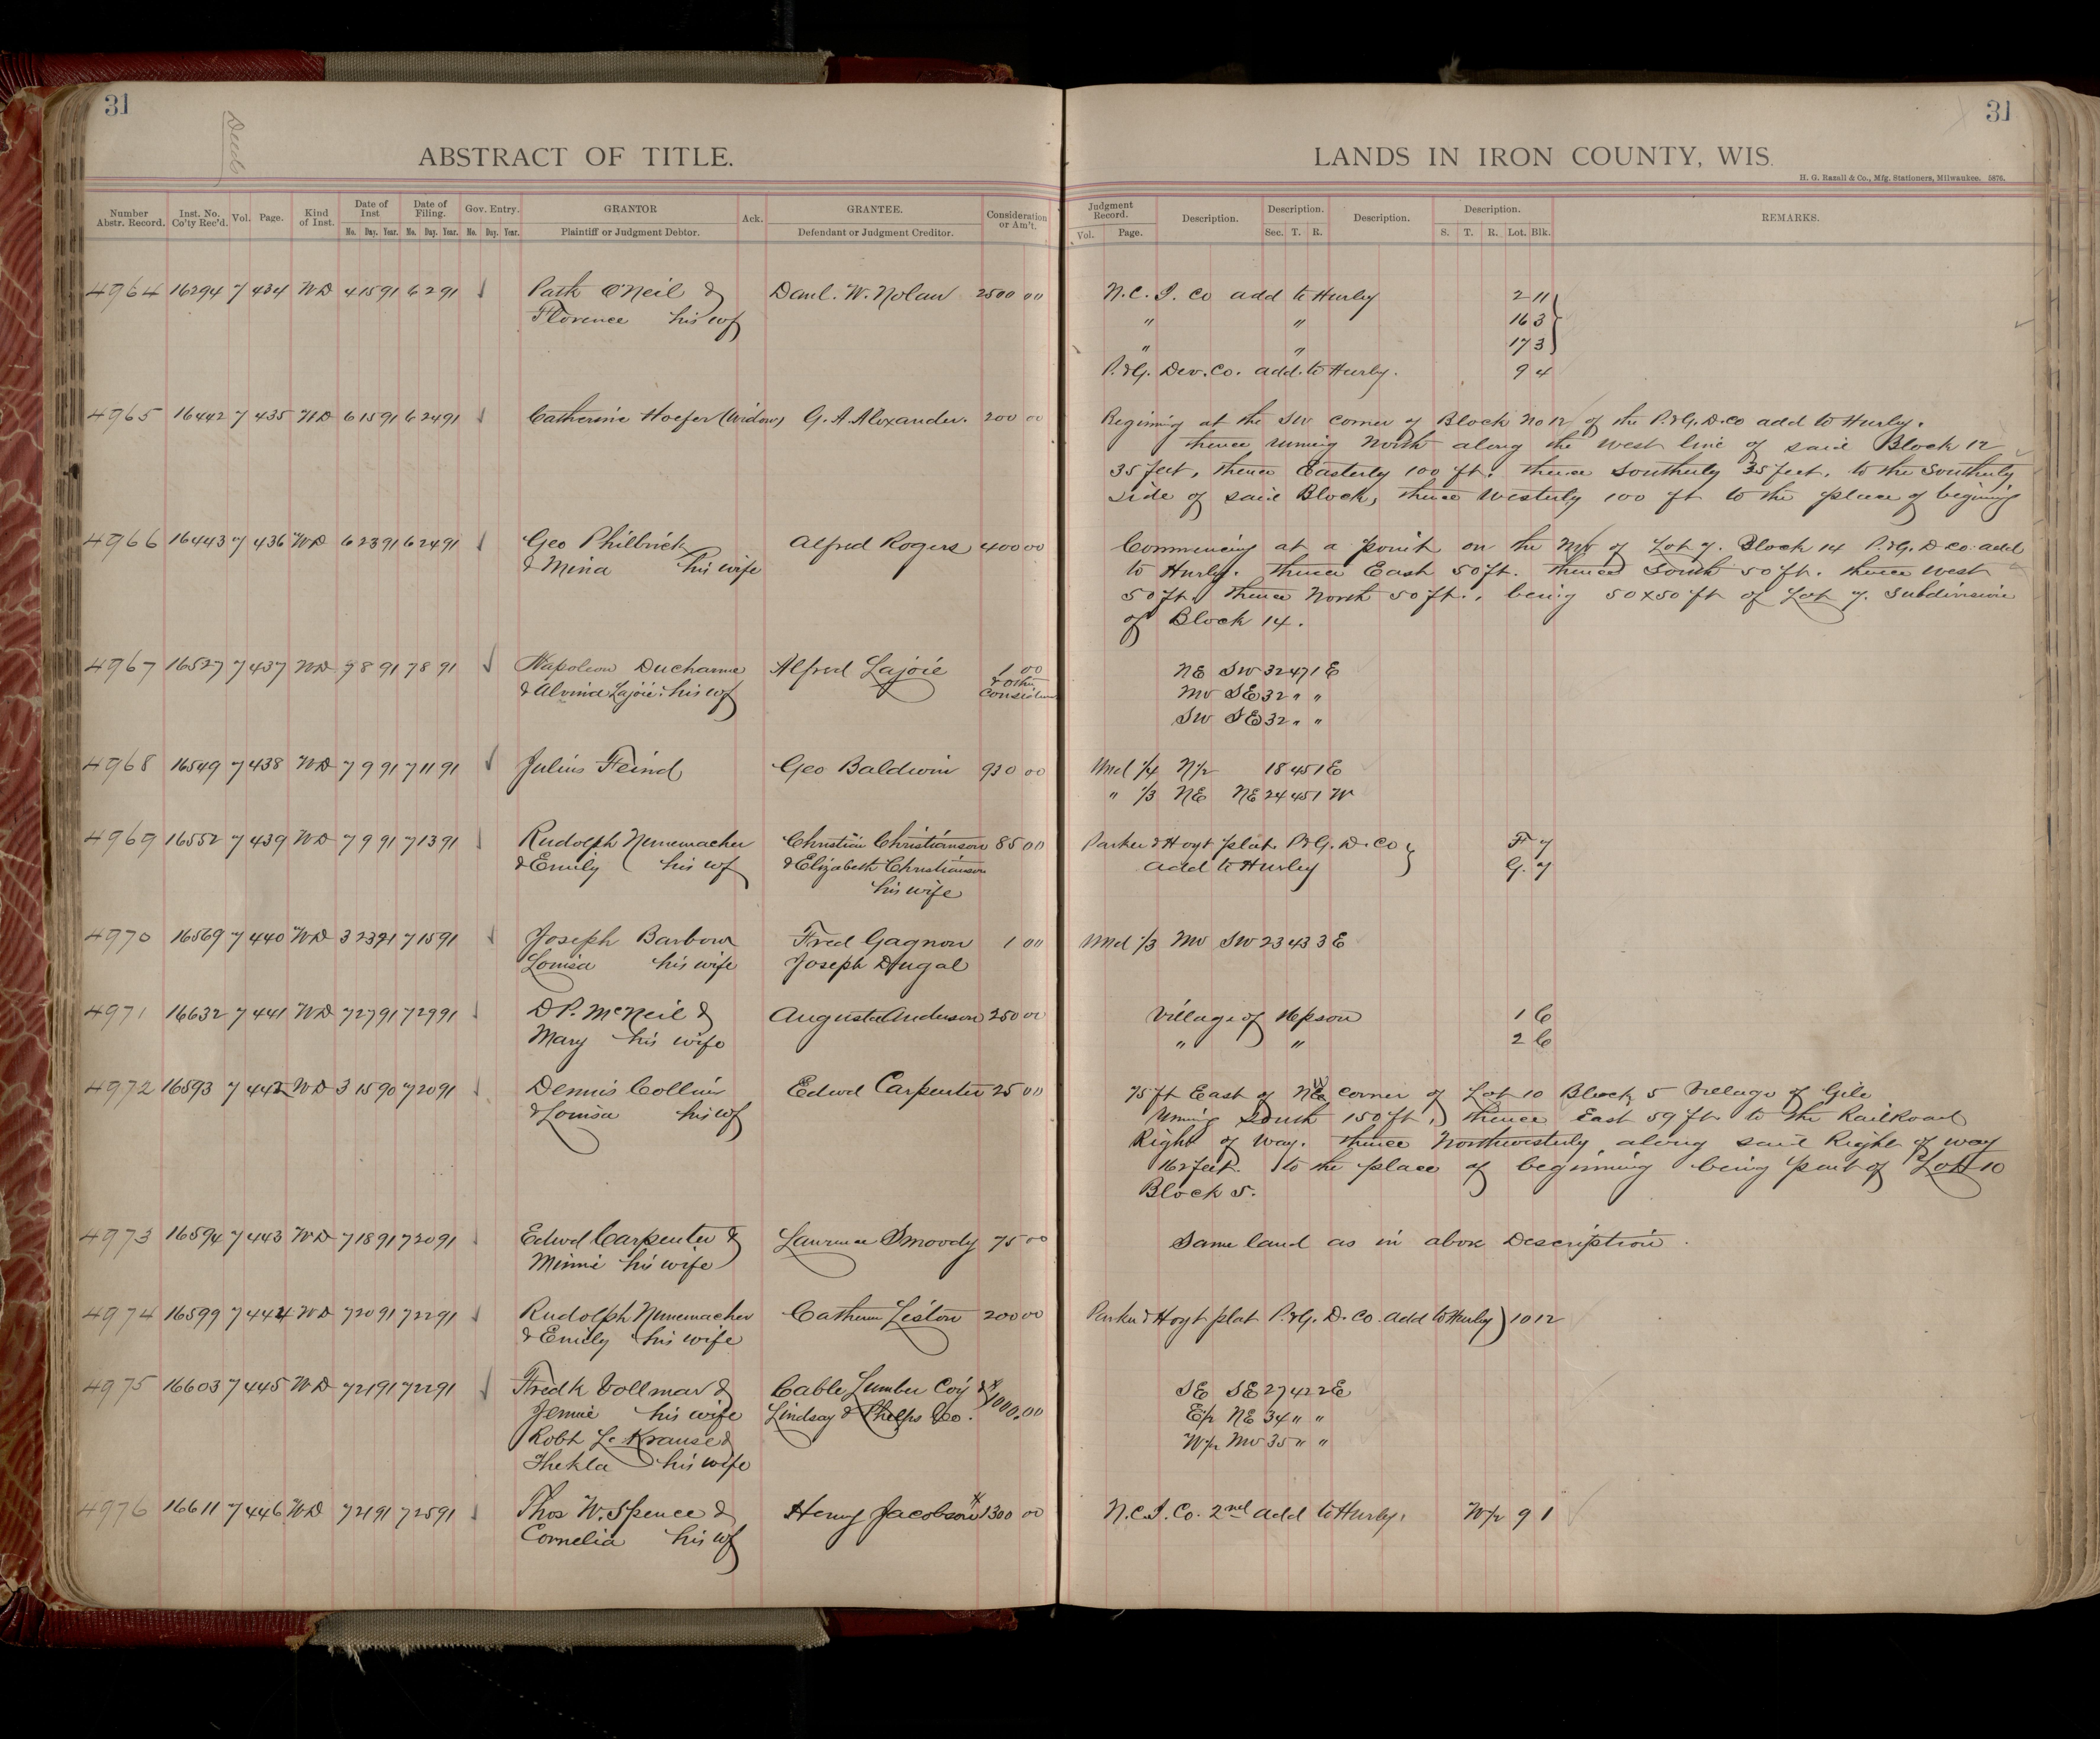 31
Deeds
ABSTRACT OF TITLE.
Number Abstr. Record. Inst. No. Co'ty Rec'd. Vol. Page. Kind of Inst. Date of Inst No. Day. Year. Date of Filing. No. Day. Year. Gov. Entry. No. Day. Year. GRANTOR Plaintiff or Judgment Debtor. Ack. GRANTEE. Defendant or Judgment Creditor. Consideration or Am't.
4964 16294 7 434 WD 4 15 91 6 2 91 ✓ Patk O'Neil & Danl. W. Nolan 2500 00
Florence his wf
4965 16442 7 435 WD 6 15 91 6 24 91 ✓ Catherine Hoefer (Widow) G. A. Alexander. 200 00
4966 16443 7 436 WD 6 23 91 6 24 91 ✓ Geo Philbrick Alfred Rogers 400 00
& Mina his wife
4967 16527 7 437 WD 7 8 91 7 8 91 ✓ Napoleon Ducharme Alfred Lajoie 1 00
& Alvina Lajoie his wf & other
4968 16549 7 438 WD 7 9 91 7 11 91 ✓ Julius Feind Geo Baldwin 930 00
4969 16552 7 439 WD 7 9 91 7 13 91 ✓ Rudolph Nunemacher Christian Christianson 85 00
& Emily his wf & Elizabeth Christianson
his wife
4970 16569 7 440 WD 3 23 91 7 15 91 ✓ Joseph Barbour Fred Gagnon 1 00
Louisa his wife Joseph Dugal
4971 16632 7 441 WD 7 27 91 7 29 91 ✓ D P. McNeil & August Anderson 250 00
Mary his wife
4972 16593 7 442 WD 3 15 90 7 20 91 ✓ Dennis Collins Edwd Carpenter 25 00
& Louisa his wf
4973 16594 7 443 WD 7 18 91 7 20 91 ✓ Edwd Carpenter & Laurence Smoody 75 00
Minnie his wife
4974 16599 7 444 WD 7 20 91 7 22 91 ✓ Rudolph Nunemacher Cathern Liston 200 00
& Emily his wife
4975 16603 7 445 WD 7 21 91 7 22 91 ✓ Fredk Vollmar & Cable Lumber Coy & 1000.00
Jennie his wife Lindsay & Phelps Co.
Robt L. Krause &
Thekla his wife
4976 16611 7 446 WD 7 21 91 7 25 91 ✓ Thos W. Spence & Henry Jacobson 1300 00
Cornelia his wf
31
LANDS IN IRON COUNTY, WIS.
H. G. Razall & Co., Mfg. Stationers, Milwaukee. 5876.
Judgment Record. Vol. Page. Description. Description. Sec. T. R. Description. Description. S. T. R. Lot. Blk. REMARKS.
N.C.I. Co add to Hurley 2 11
" " 16 3
" " 17 3
P.&G. Dev. Co. add. to Hurley. 9 4
Begining at the SW corner of Block No 12 of the P.&G.D.Co add to Hurley.
thence runing North along the west line of said Block 12
35 feet, thence Easterly 100 ft. thence Southerly 35 feet. to the Southerly
side of said Block, thence Westerly 100 ft to the place of begining
Commencing at a point on the NW of Lot 7. Block 14 P.&G. D Co. add
to Hurley. thence East 50 ft. thence South 50 ft. thence West
50 ft. thence North 50 ft., being 50x50 ft of Lot 7. Subdivision
of Block 14.
NE SW 32 47 1 E
NW SE 32 " "
SW SE 32 " "
Und 1/4 N1/2 18 45 1 E
" 1/3 NE NE 24 45 1 W
Parker & Hoyt plat P.&G. D. Co F 7
add to Hurley G. 7
Und 1/3 NW SW 23 43 3 E
Village of Hepson 1 C
" " 2 C
75 ft East of corner of Lot 10 Block 5 Village of Gile
runing South 150 ft, thence East 59 ft to the RailRoad
Right of way. thence Northwesterly along said Right of way
162 feet. to the place of beginning being part of Lot 10
Block 5.
Same land as in above Description.
Parker & Hoyt plat P.&G. D. Co. add to Hurley 10 12
SE SE 27 42 2 E
E1/2 NE 34 " "
W1/2 NW 35 " "
N.C.I. Co. 2nd add to Hurley. W1/2 9 1